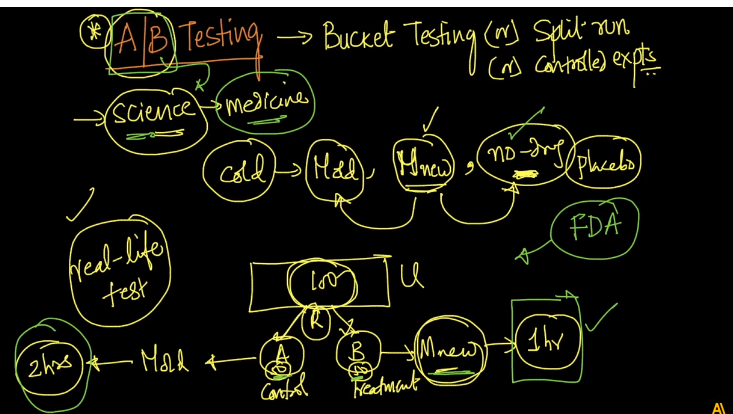 * A|B Testing → Bucket Testing (or) Split-run
(or) controlled expts
→ science → medicine
cold → Mold, Mnew, no-drug placebo
FDA
real-life test
100 U
R
A B
50 50
control treatment
2hrs ← Mold ← → Mnew → 1hr